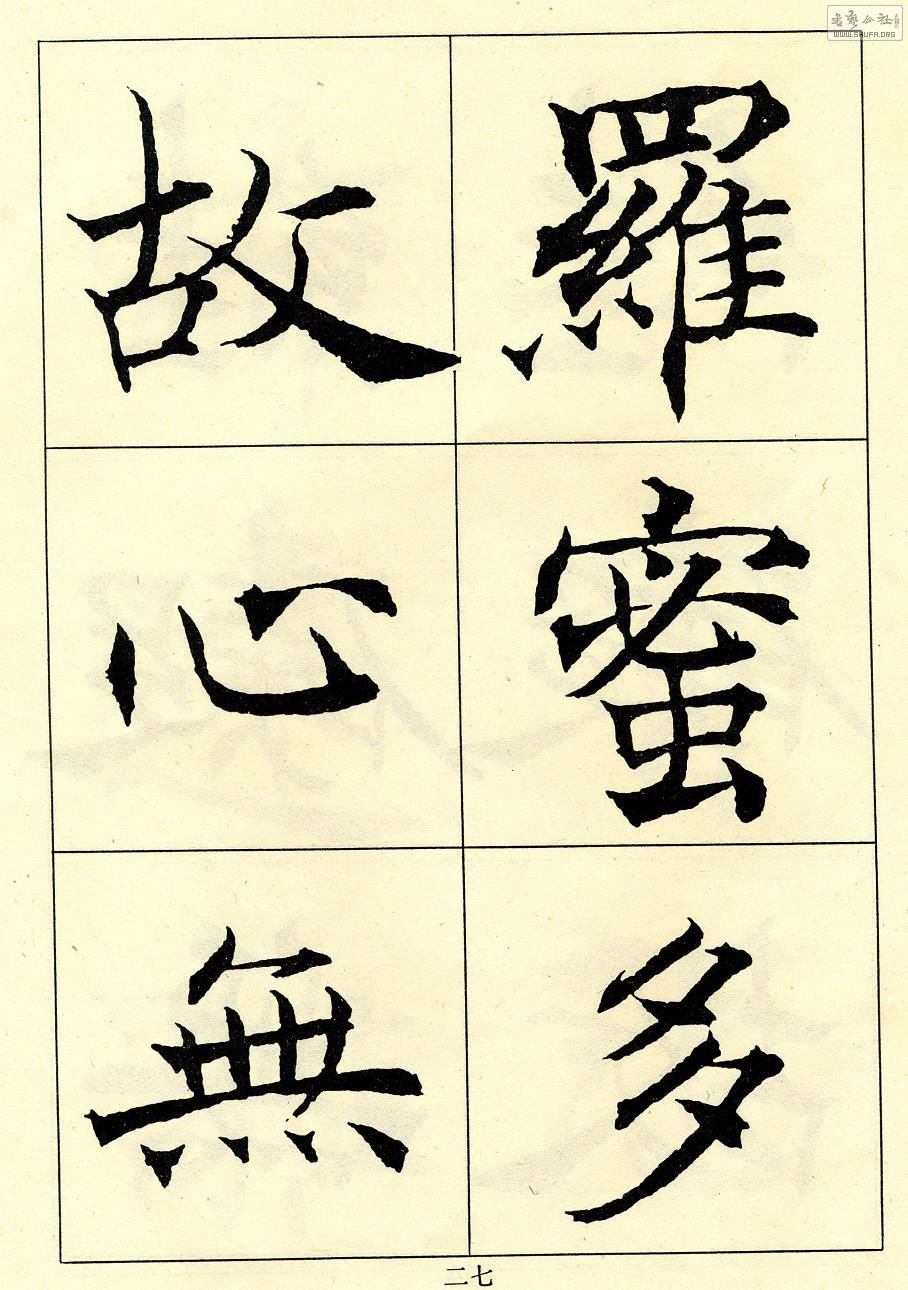 羅蜜多
故心無
二七
書藝公社
WWW.SHUFA.ORG